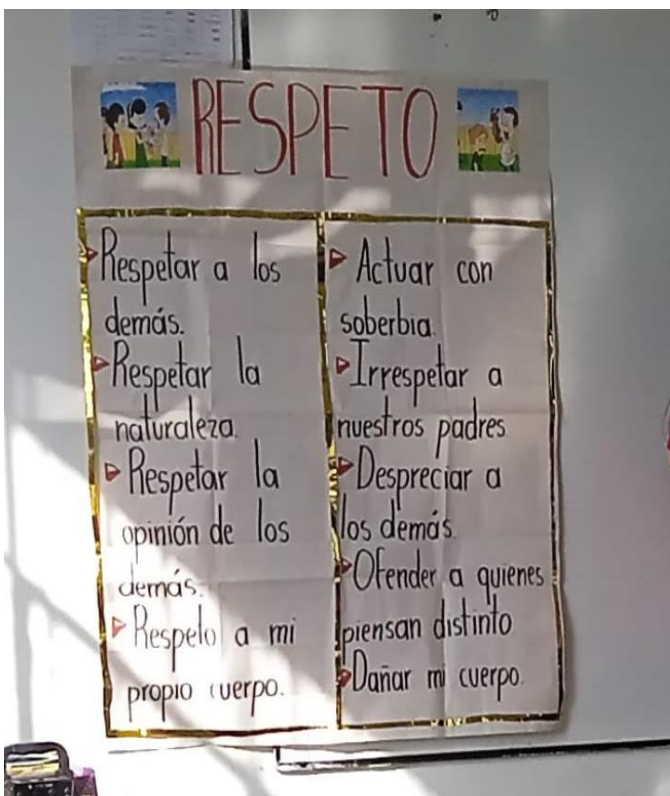 RESPETO
Respetar a los
demás.
Respetar la
naturaleza.
Respetar la
opinión de los
demás.
Respeto a mi
propio cuerpo.
Actuar con
soberbia.
Irrespetar a
nuestros padres
Despreciar a
los demás.
Ofender a quienes
piensan distinto
Dañar mi cuerpo.